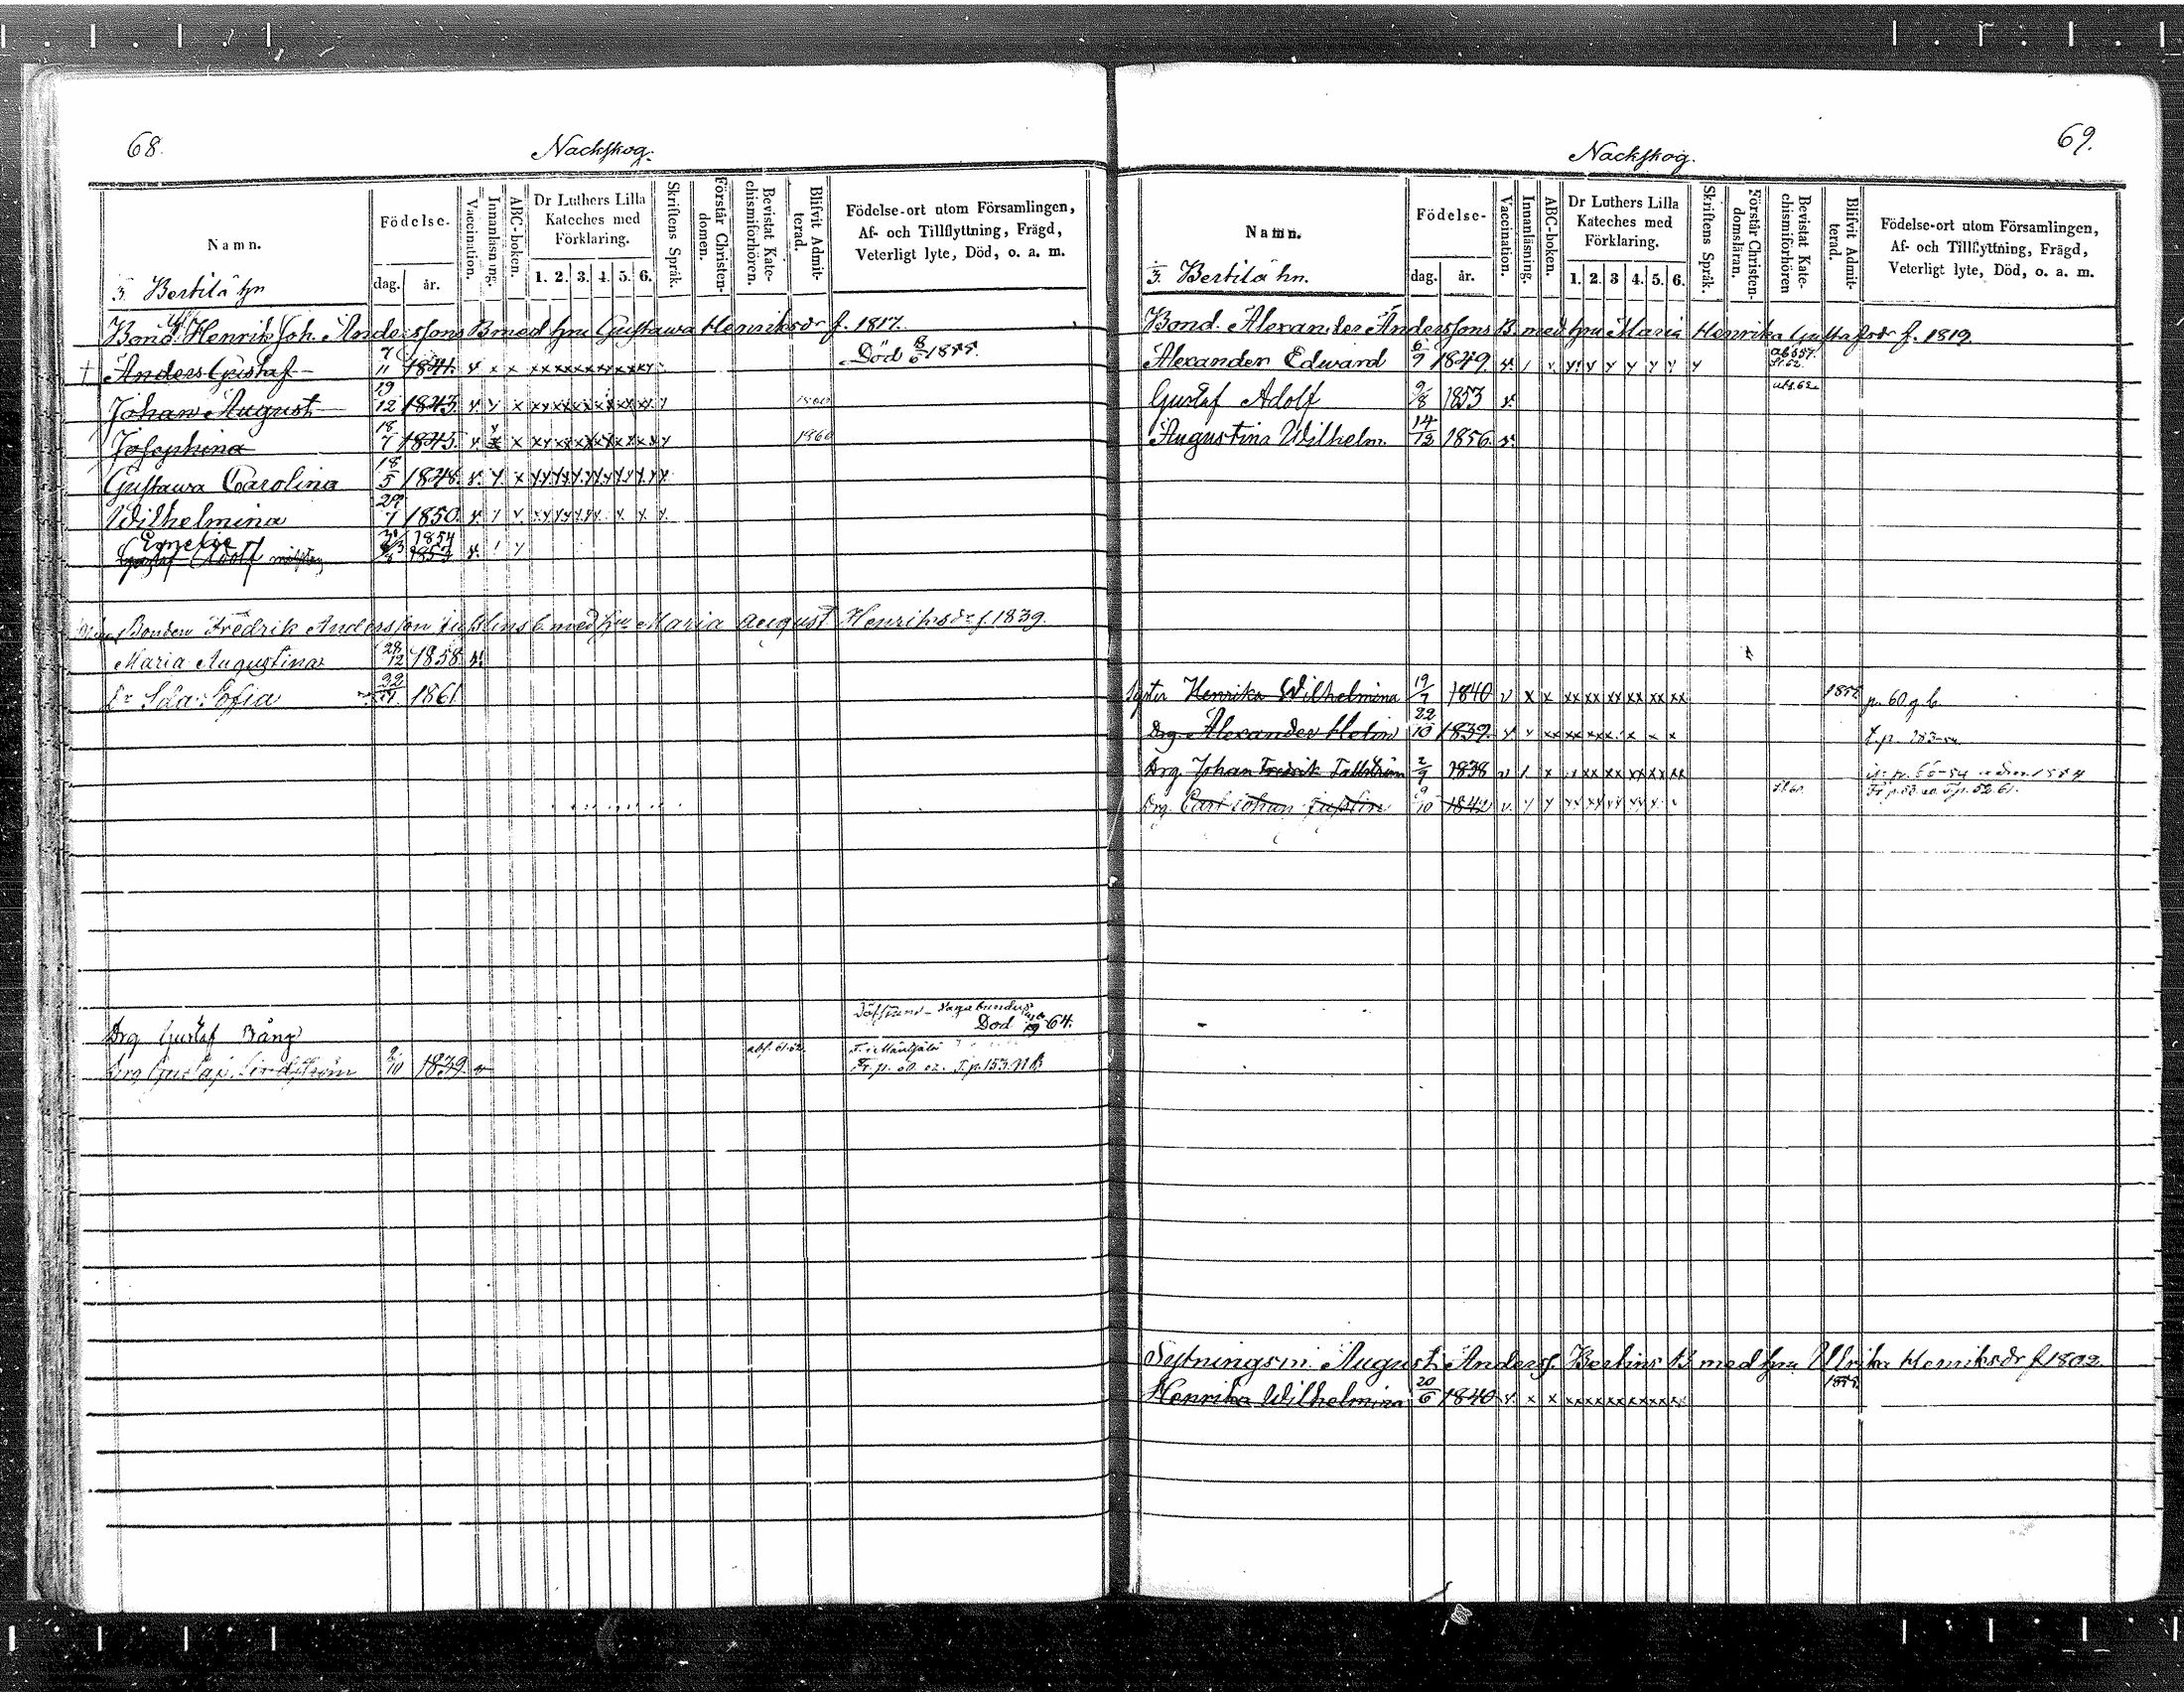 68.
Nackskog.
Namn.
Födelse.
dag. år.
Vaccination.
Innanläsning.
ABC-boken.
Dr Luthers Lilla
Kateches med
Förklaring.
1. 2. 3. 4. 5. 6.
Skriftens Språk.
Förstår Christen-
domen.
Bevistat Kate-
chismiförhören.
Blifvit Admit-
terad.
Födelse-ort utom Församlingen,
Af- och Tillflyttning, Frägd,
Veterligt lyte, Död, o. a. m.
3. Bertilä hn
Bond. Henrik Joh. Anderssons B med hru Gustawa Henriksdr f. 1817.
† Anders Gustaf 7/11 1841. Död 8/6 1855.
Johan August 19/12 1843.
Josephina 18/7 1845. 1860
Gustawa Carolina 18/5 1848.
Wilhelmina 29/7 1850.
Emelie 1854
Gustaf Adolf 1853
Bonden Fredrik Andersson Jusslins b. med hru Maria August Henriksdr f. 1839.
Maria Augustina 28/12 1858
Dr Ida Sofia 1861
Drg Gustaf Bång Död 64.
Drg Gustaf Lindström 2/10 1839.
T. p. 153
69.
Nackskog.
Namn.
Födelse-
dag. år.
Vaccination.
Innanläsning.
ABC-boken.
Dr Luthers Lilla
Kateches med
Förklaring.
1. 2. 3 4. 5. 6.
Skriftens Språk.
Förstår Christen-
domsläran.
Bevistat Kate-
chismiförhören
Blifvit Admit-
terad.
Födelse-ort utom Församlingen,
Af- och Tillflyttning, Frägd,
Veterligt lyte, Död, o. a. m.
3. Bertilä hn.
Bond. Alexander Anderssons B. med hru Maria Henrika Gustafsdr f. 1819
Alexander Edward 6/9 1849.
Gustaf Adolf 9/8 1853
Augustina Wilhelm. 14/12 1856.
Syster Henrika Wilhelmina 19/7 1840 p. 60 g. b.
Drg. Alexander Holm 22/10 1839.
Drg. Johan Fredrik Tallström 2/9 1838
Drg. Carl Johan Jusslin 9/10 1842
Sytningsm. August Anderss. Bertins B med hru Ulrika Henriksdr f 1802.
Henrika Wilhelmina 20/6 1840